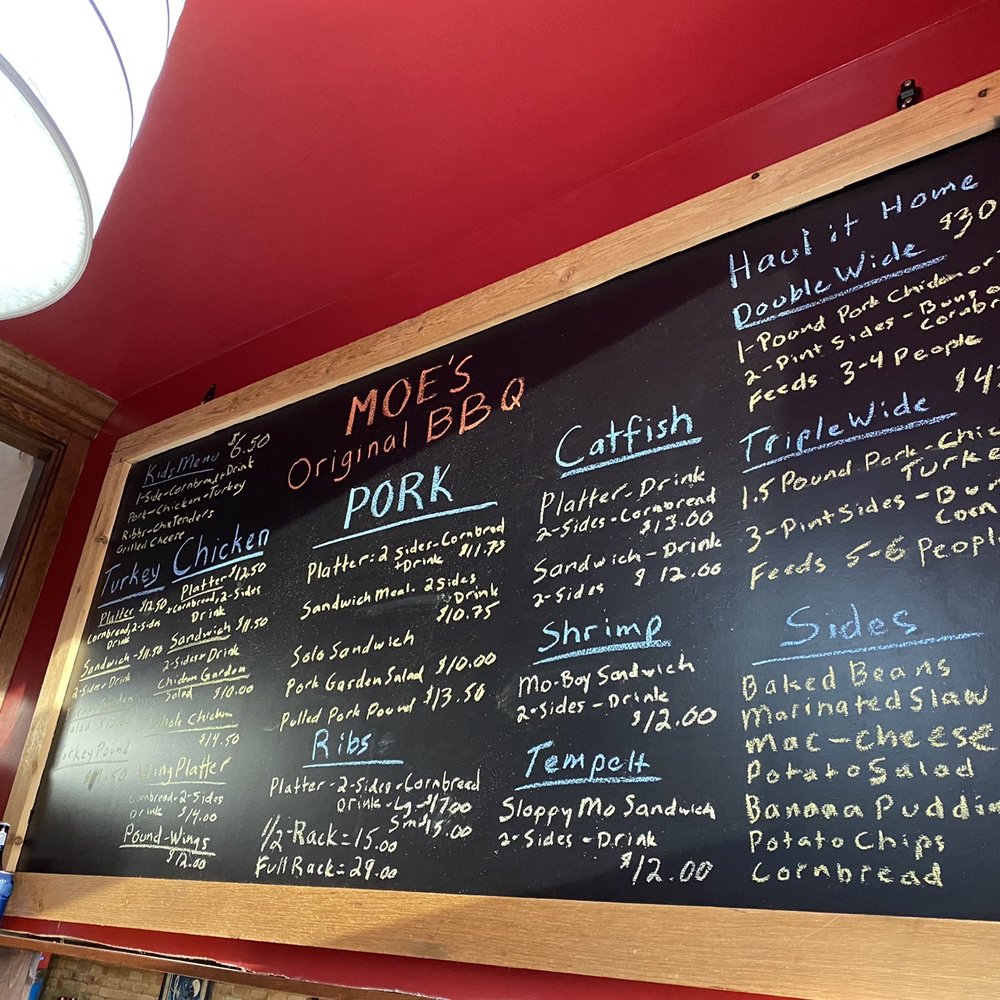 MOE'S
Original BBQ
Kids Menu $6.50
1-Side-Cornbread-Drink
Pork-Chicken-Turkey
Ribs-ChxTenders
Grilled Cheese
Turkey
Platter $12.50
Cornbread, 2-Sides
Drink
Sandwich-$11.50
2-Sides+Drink
Salad
Turkey Pound
Chicken
Platter $12.50
Cornbread, 2-Sides
Drink
Sandwich $11.50
2-Sides+Drink
Chicken Garden
Salad $10.00
Whole Chicken
$14.50
Wing Platter
Cornbread-2-Sides
Drink $14.00
Pound-Wings
$12.00
PORK
Platter=2 Sides-Cornbread
+Drink $11.75
Sandwich Meal-2 Sides
+Drink
$10.75
Solo Sandwich
Pork Garden Salad $10.00
Pulled Pork Pound $13.50
Ribs
Platter-2-Sides-Cornbread
Drink-Lg-$17.00
Sm$15.00
1/2-Rack=15.00
Full Rack=29.00
Catfish
Platter-Drink
2-Sides-Cornbread
$13.00
Sandwich-Drink
2-Sides $12.00
Shrimp
Mo-Boy Sandwich
2-Sides-Drink
$12.00
Tempeh
Sloppy Mo Sandwich
2-Sides-Drink
$12.00
Haul it Home
Double Wide $30
1-Pound Pork Chicken or
2-Pint Sides-Buns or
Cornbr
Feeds 3-4 People
Triple Wide
1.5 Pound Pork-Chic
Turke
3-Pint Sides-Bun
Corn
Feeds 5-6 People
Sides
Baked Beans
Marinated Slaw
Mac-cheese
Potato Salad
Banana Puddin
Potato Chips
Cornbread